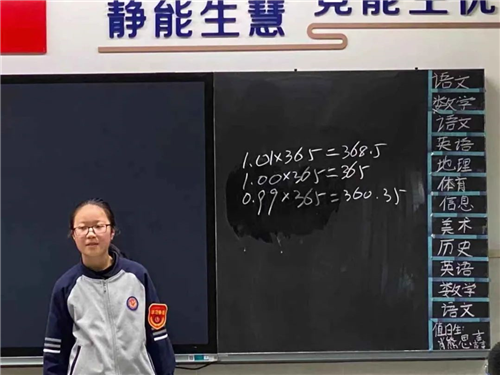 静能生慧 竞能生优
1.01×365=368.5
1.00×365=365
0.99×365=360.35
语文
数学
语文
英语
地理
体育
信息
美术
历史
英语
数学
语文
值日生: